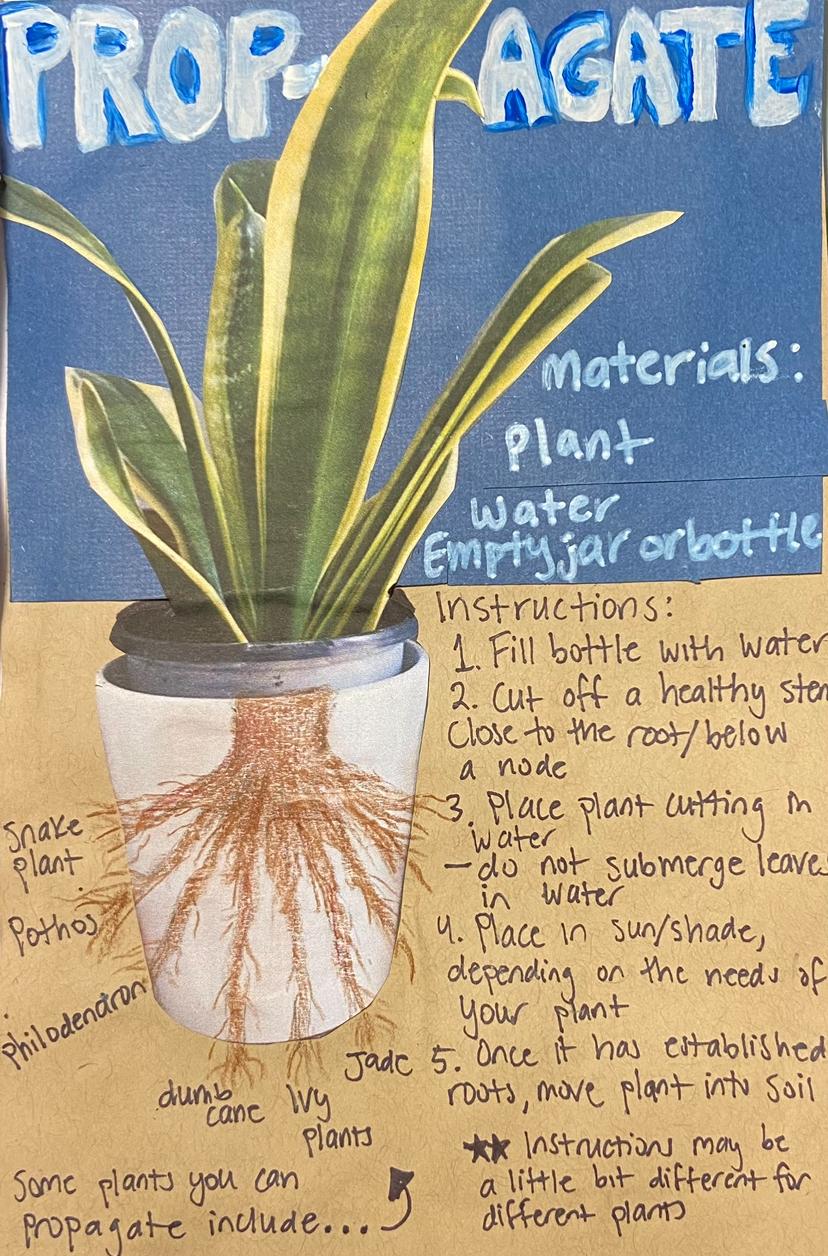 PROP-AGATE
Materials:
Plant
Water
Empty jar or bottle
Instructions:
1. Fill bottle with water
2. Cut off a healthy stem
Close to the root/below
a node
3. Place plant cutting in
water
- do not submerge leaves
in water
4. Place in sun/shade,
depending on the needs of
your plant
5. Once it has established
roots, move plant into soil
** Instructions may be
a little bit different for
different plants
Snake
plant
Pothos
Philodendron
dumb
cane
Ivy
plants
Jade
Some plants you can
propagate include...